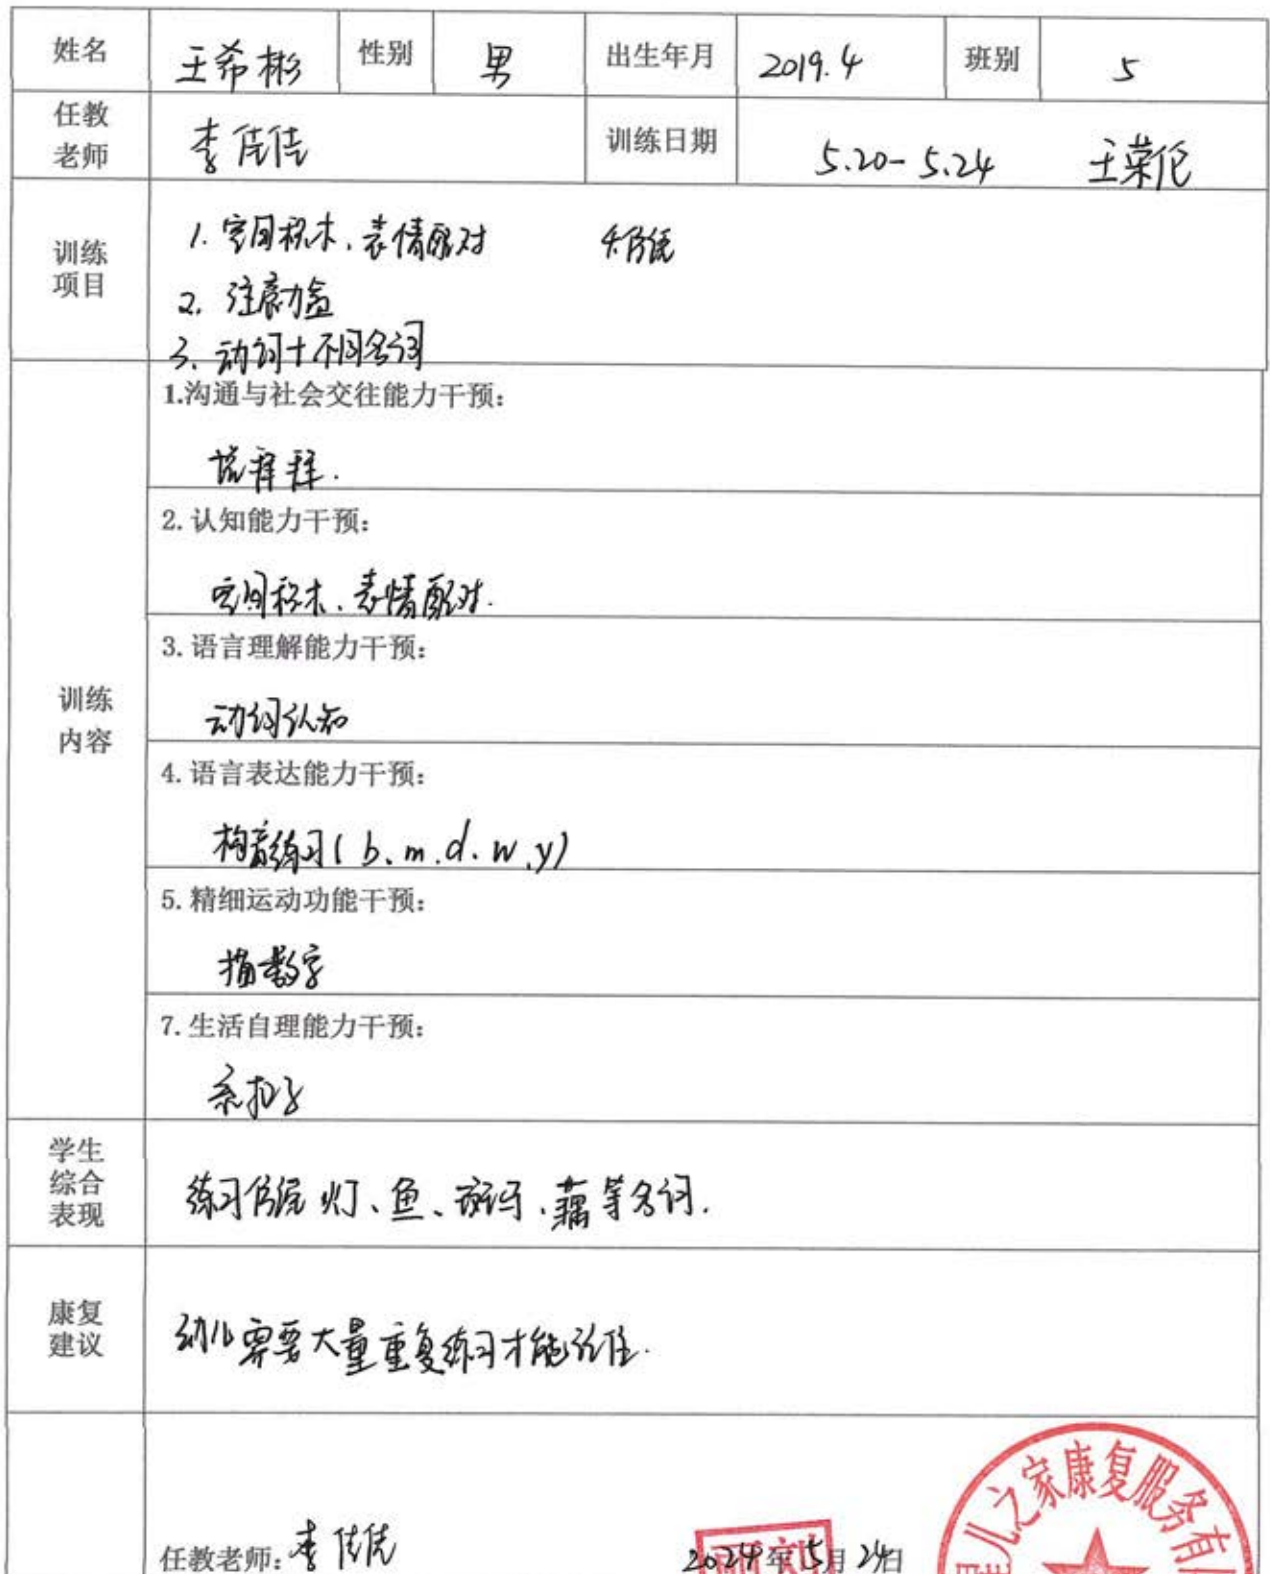 姓名 王希彬 性别 男 出生年月 2019.4 班别 5
任教老师 李佳佳 训练日期 5.20-5.24 王荣伦
训练项目
1. 空间积木、表情配对 仿练
2. 注意力盒
3. 动词+不同名词
训练内容
1.沟通与社会交往能力干预:
说拜拜.
2.认知能力干预:
空间积木、表情配对.
3.语言理解能力干预:
动词认知
4.语言表达能力干预:
构音练习(b、m、d、w、y)
5.精细运动功能干预:
描数字
7.生活自理能力干预:
系扣子
学生综合表现
练习仿说 灯、鱼、斑马、藕等名词.
康复建议
幼儿需要大量重复练习才能记住.
任教老师: 李佳佳 2024年5月24日
儿之家康复服务有